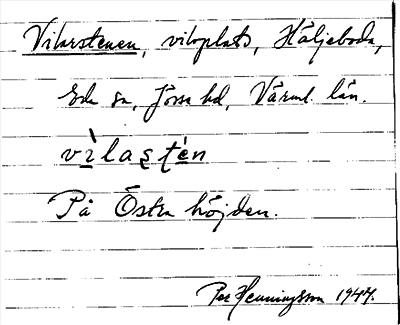 Vilarstenen, viloplats, Häljeboda,
Eda sn, Jösse hd, Värml. län.
vìlastén
På Östra höjden.
Per Henningsson 1944.